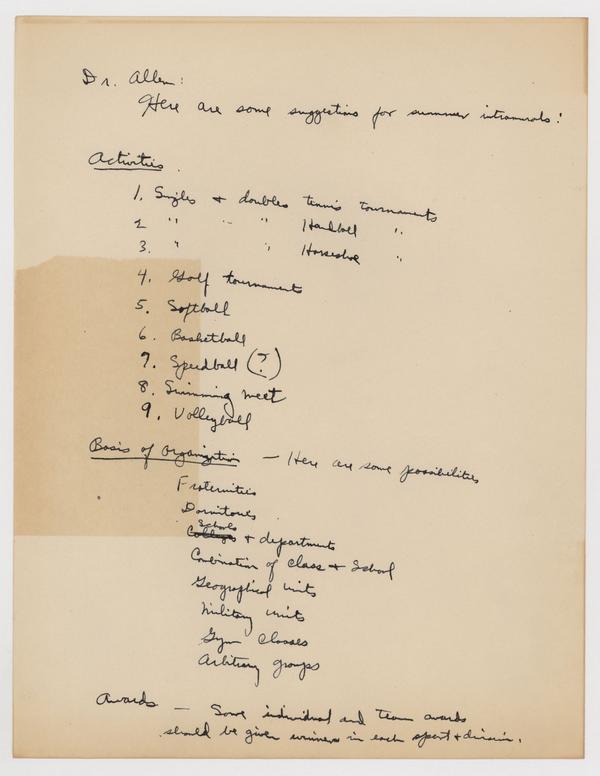 Dr. Allen:
Here are some suggestions for summer intramurals:
Activities.
1. Singles + doubles tennis tournaments
2 " " " Handball "
3. " " Horseshoe "
4. Golf tournaments
5. Softball
6. Basketball
7. Speedball (?)
8. Swimming meet
9. Volleyball
Basis of Organization — Here are some possibilities
Fraternities
Dormitories
Schools
Colleges + departments
Combination of class + school
Geographical units
Military units
Gym classes
Arbitrary groups
Awards — Some individual and team awards
should be given winners in each sport + division.